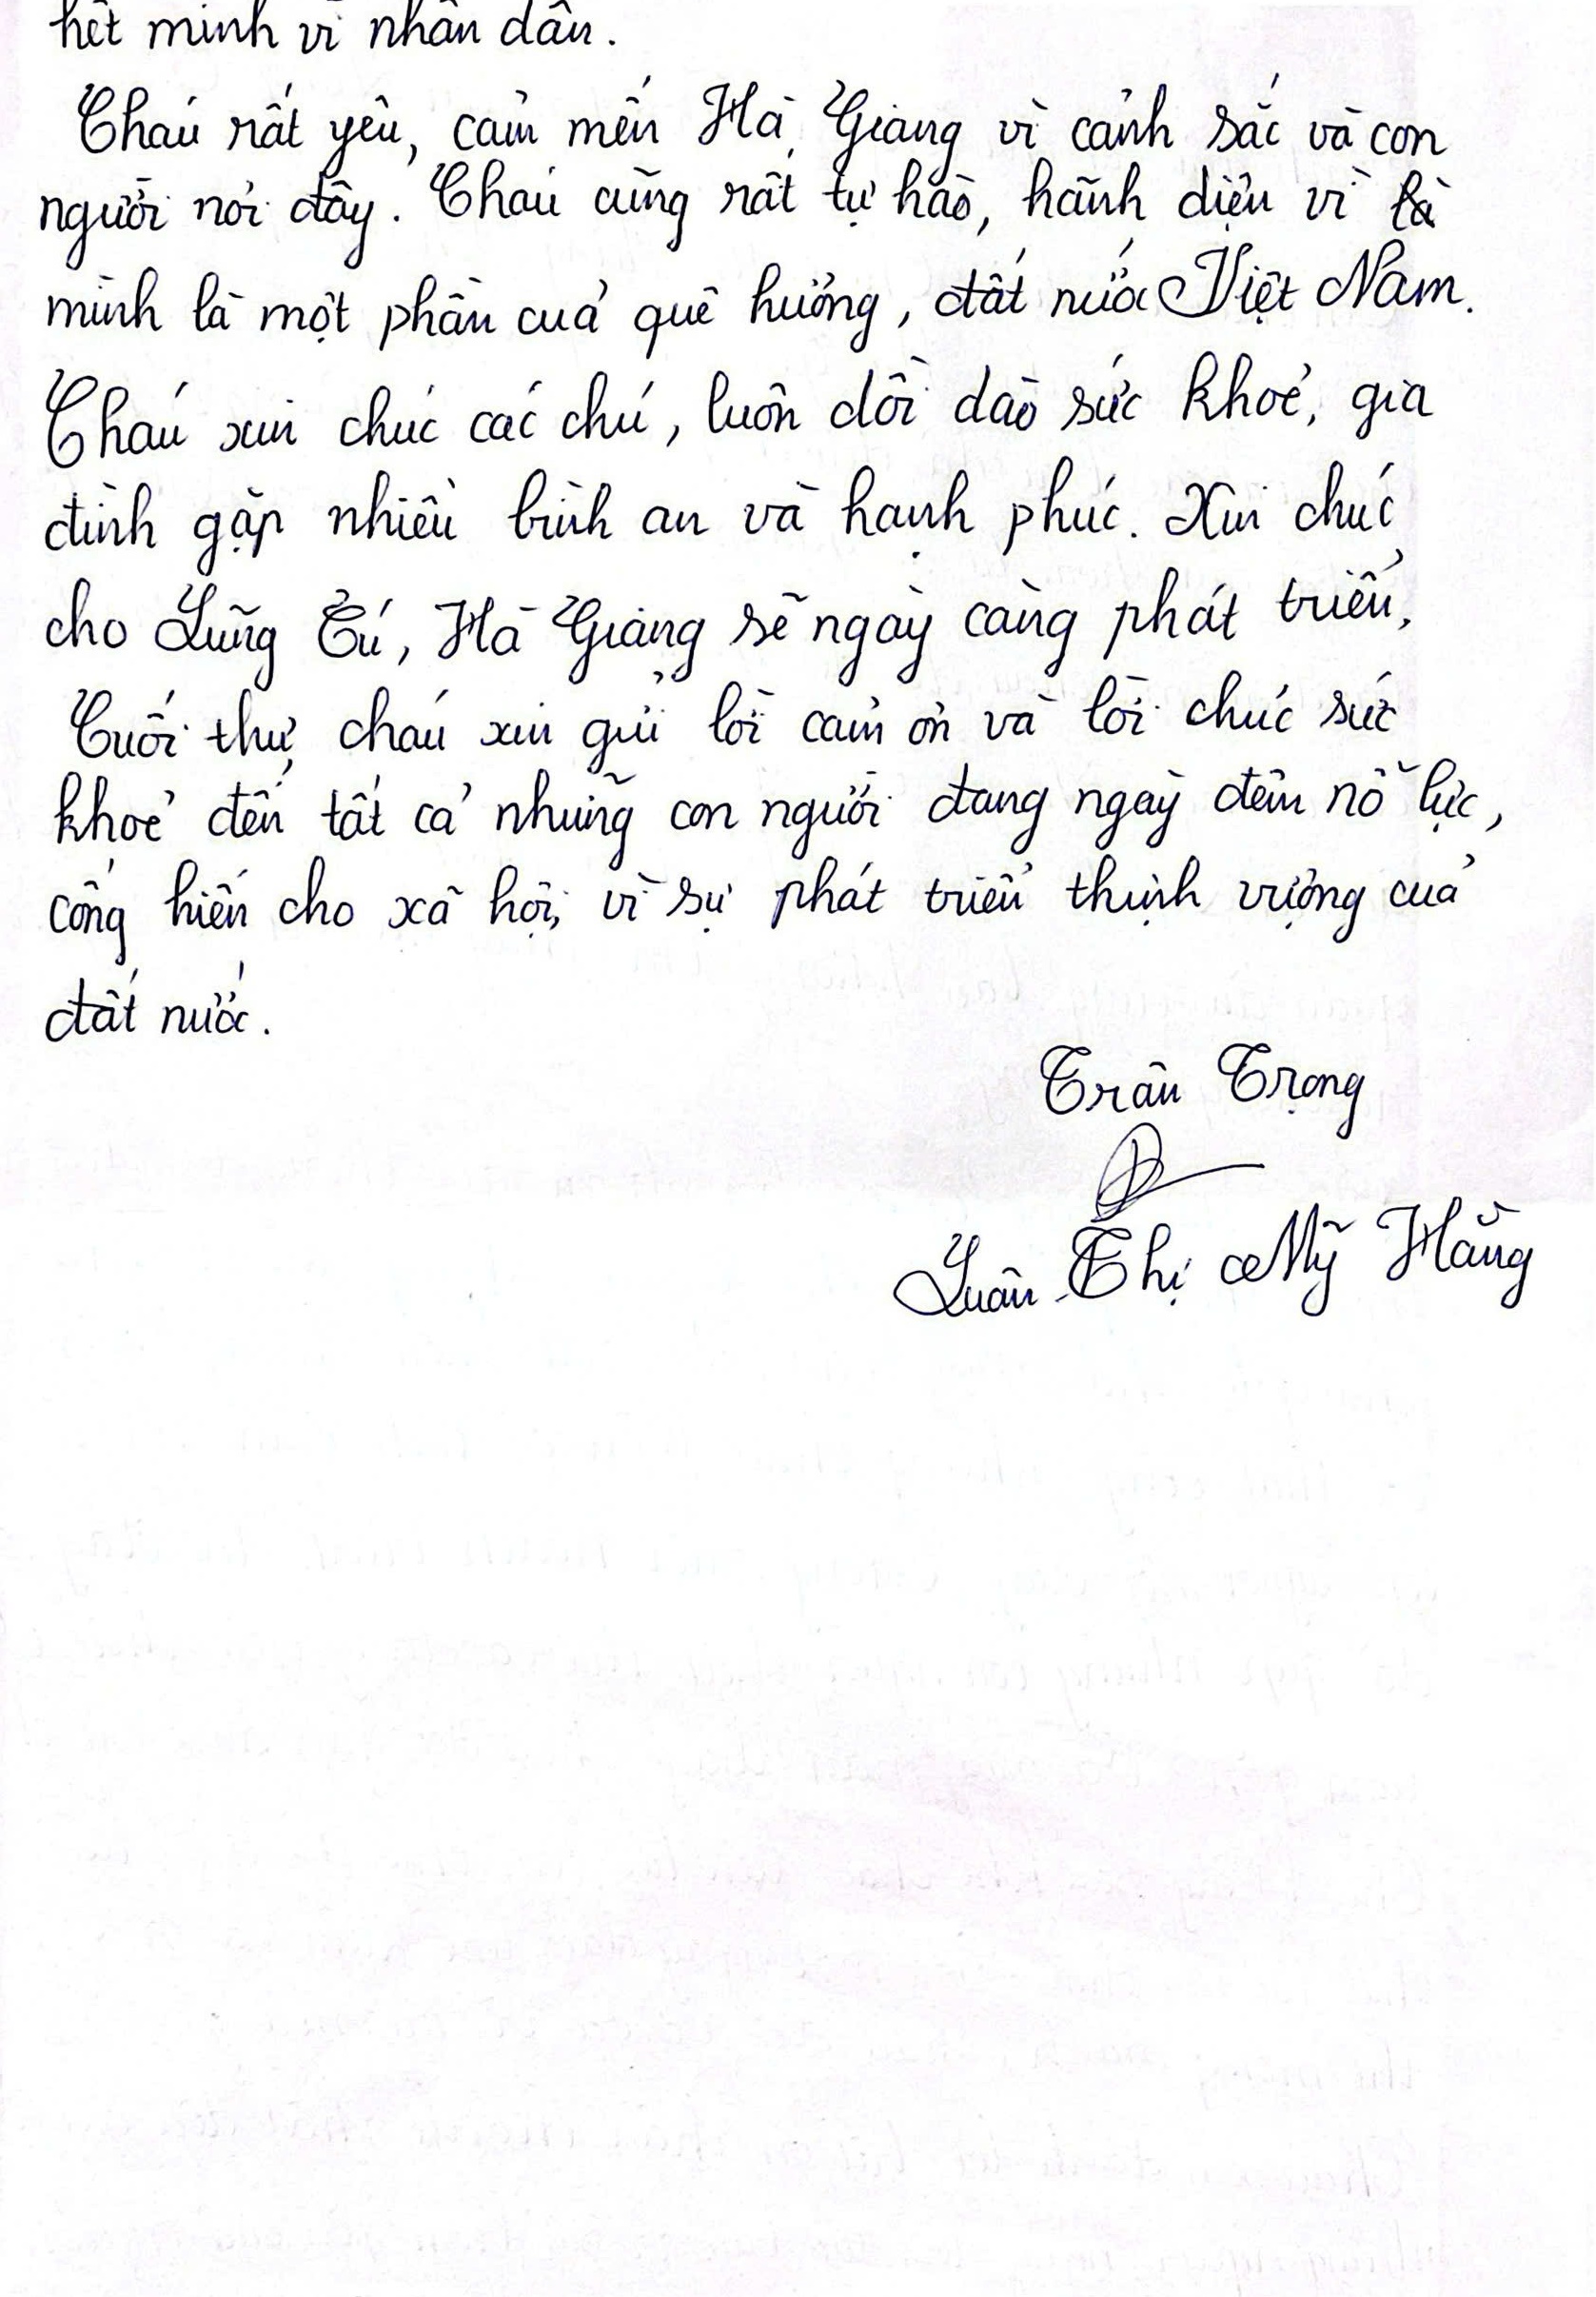 hết mình vì nhân dân.
Cháu rất yêu, cảm mến Hà Giang vì cảnh sắc và con
người nơi đây. Cháu cũng rất tự hào, hãnh diện vì là
mình là một phần của quê hương, đất nước Việt Nam.
Cháu xin chúc các chú, luôn dồi dào sức khoẻ, gia
đình gặp nhiều bình an và hạnh phúc. Xin chúc
cho Lũng Cú, Hà Giang sẽ ngày càng phát triển.
Cuối thư, cháu xin gửi lời cảm ơn và lời chúc sức
khoẻ đến tất cả những con người đang ngày đêm nỗ lực,
cống hiến cho xã hội, vì sự phát triển thịnh vượng của
đất nước.
Trân Trọng
Luân Thị Mỹ Hằng